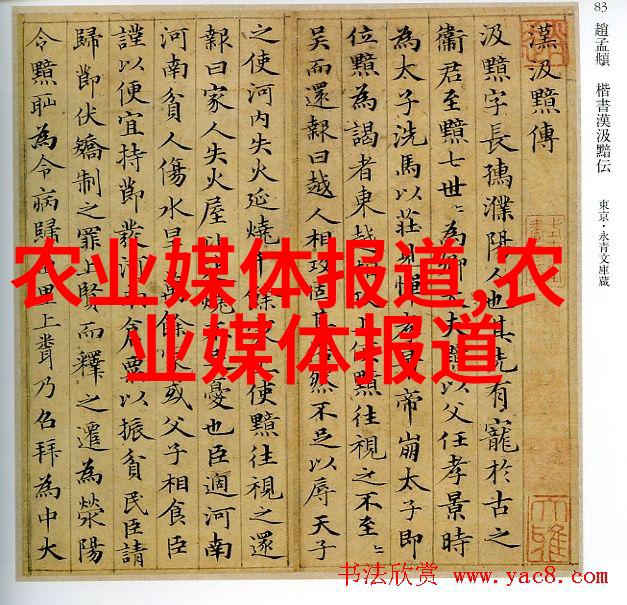 83 趙孟頫 楷書漢汲黯伝 東京・永青文庫蔵
漢汲黯傳
汲黯字長孺濮陽人也其先有寵於古之
衛君至黯七世〻為卿夫黯以父任孝景時
為太子洗馬以莊見憚帝崩太子即
位黯為謁者東越相攻黯往視之不至〻
吳而還報曰越人相攻固其然不足以辱天子
之使河内失火延燒千餘使黯往視之還
報曰家人失火屋燒憂也臣過河南
河南貧人傷水旱萬餘或父子相食臣
謹以便宜持節發河倉粟以振貧民臣請
歸節伏矯制之罪上賢而釋之遷為滎陽
令黯恥為令病歸里上聞乃召拜為中大
农业媒体报道,农
业媒体报道
书法欣赏 www.yac8.com